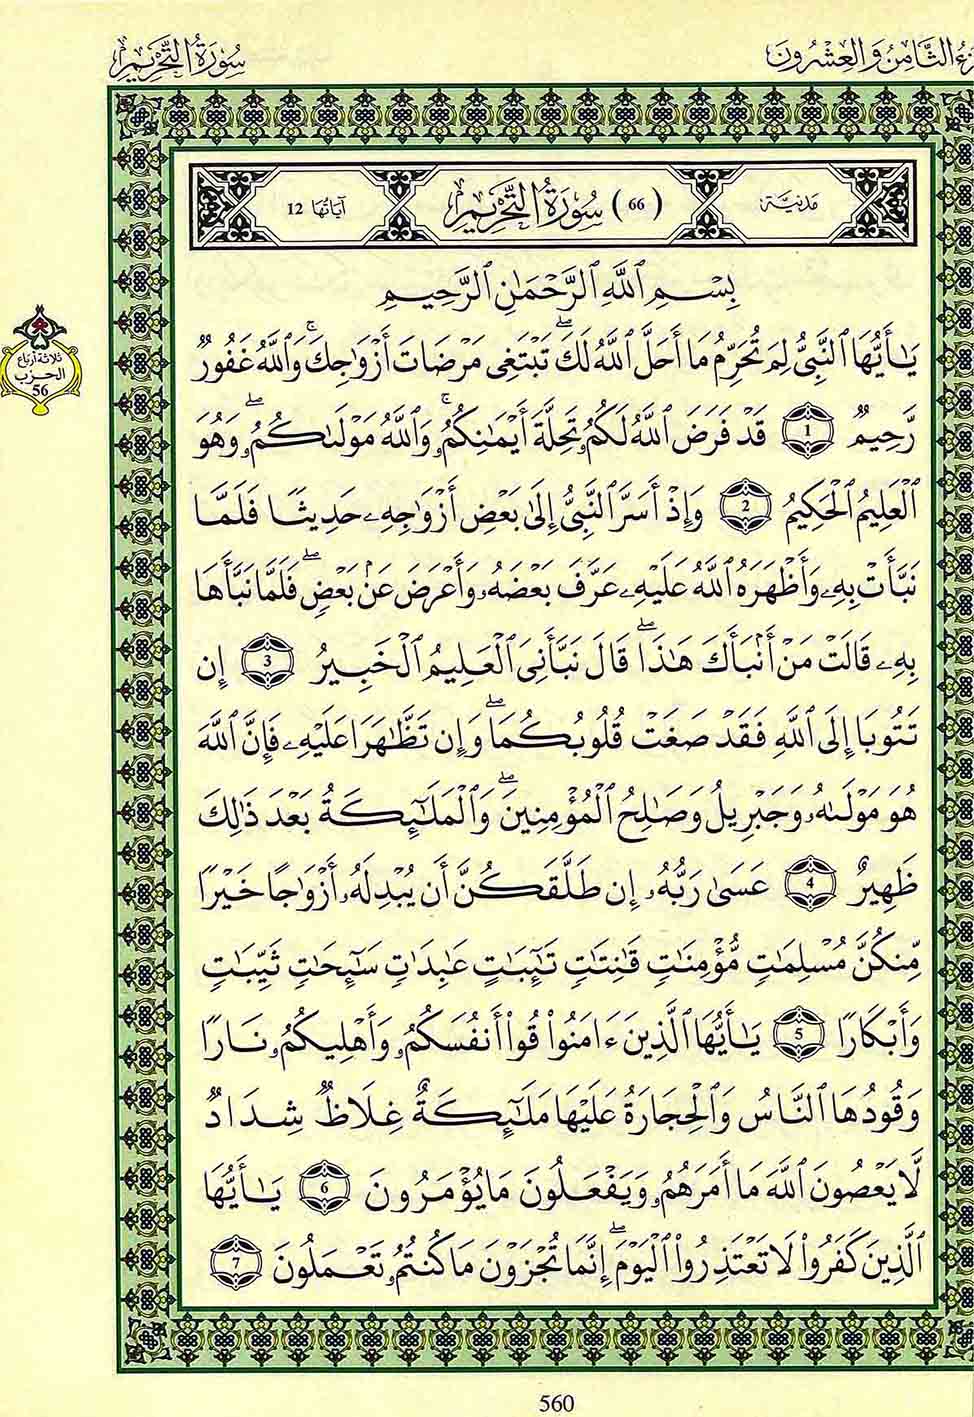 سُورَةُ التَّحْرِيمِ
الثَّامِنُ وَالْعِشْرُونَ
مَدَنِيَّة
(66) سُورَةُ التَّحْرِيمِ
آيَاتُهَا 12
بِسْمِ ٱللَّهِ ٱلرَّحْمَٰنِ ٱلرَّحِيمِ
يَٰٓأَيُّهَا ٱلنَّبِىُّ لِمَ تُحَرِّمُ مَا أَحَلَّ ٱللَّهُ لَكَۖ تَبْتَغِى مَرْضَاتَ أَزْوَٰجِكَۚ وَٱللَّهُ غَفُورٌ
رَّحِيمٌ 1 قَدْ فَرَضَ ٱللَّهُ لَكُمُۥ تَحِلَّةَ أَيْمَٰنِكُمُۥۚ وَٱللَّهُ مَوْلَىٰكُمُۥۖ وَهُوَ
ٱلْعَلِيمُ ٱلْحَكِيمُ 2 وَإِذْ أَسَرَّ ٱلنَّبِىُّ إِلَىٰ بَعْضِ أَزْوَٰجِهِۦ حَدِيثًا فَلَمَّا
نَبَّأَتْ بِهِۦ وَأَظْهَرَهُ ٱللَّهُ عَلَيْهِۦ عَرَّفَ بَعْضَهُۥ وَأَعْرَضَ عَنْ بَعْضٍۖ فَلَمَّا نَبَّأَهَا
بِهِۦ قَالَتْ مَنْ أَنۢبَأَكَ هَٰذَاۖ قَالَ نَبَّأَنِىَ ٱلْعَلِيمُ ٱلْخَبِيرُ 3 إِن
تَتُوبَا إِلَى ٱللَّهِ فَقَدْ صَغَتْ قُلُوبُكُمَاۖ وَإِن تَظَّٰهَرَا عَلَيْهِۦ فَإِنَّ ٱللَّهَ
هُوَ مَوْلَىٰهُۥ وَجَبْرِيلُ وَصَٰلِحُ ٱلْمُؤْمِنِينَۖ وَٱلْمَلَٰٓئِكَةُ بَعْدَ ذَٰلِكَ
ظَهِيرٌ 4 عَسَىٰ رَبُّهُۥ إِن طَلَّقَكُنَّ أَن يُبْدِلَهُۥ أَزْوَٰجًا خَيْرًا
مِّنكُنَّ مُسْلِمَٰتٍ مُّؤْمِنَٰتٍ قَٰنِتَٰتٍ تَٰٓئِبَٰتٍ عَٰبِدَٰتٍ سَٰٓئِحَٰتٍ ثَيِّبَٰتٍ
وَأَبْكَارًا 5 يَٰٓأَيُّهَا ٱلَّذِينَ ءَامَنُوا۟ قُوا۟ أَنفُسَكُمُۥ وَأَهْلِيكُمُۥ نَارًا
وَقُودُهَا ٱلنَّاسُ وَٱلْحِجَارَةُ عَلَيْهَا مَلَٰٓئِكَةٌ غِلَاظٌ شِدَادٌ
لَّا يَعْصُونَ ٱللَّهَ مَا أَمَرَهُمُۥ وَيَفْعَلُونَ مَا يُؤْمَرُونَ 6 يَٰٓأَيُّهَا
ٱلَّذِينَ كَفَرُوا۟ لَا تَعْتَذِرُوا۟ ٱلْيَوْمَۖ إِنَّمَا تُجْزَوْنَ مَا كُنتُمُۥ تَعْمَلُونَ 7
ثلاثة أرباع
الحزب
56
560